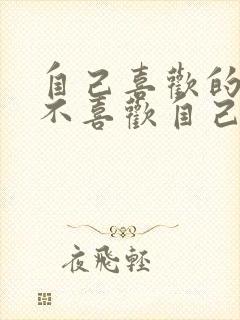 自己喜歡的
不喜歡自己
夜飛輕